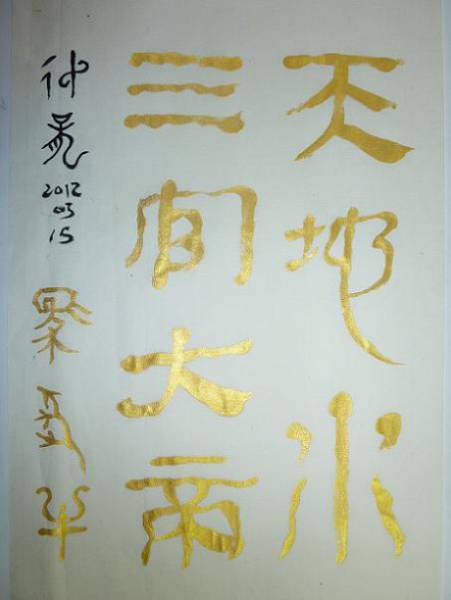 天地水
三官大帝
仲
2012
03
15
华